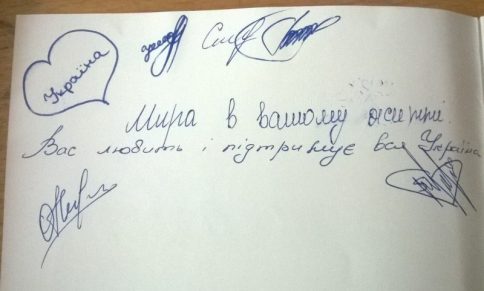 Україна
Мира в вашому житті.
Вас любить і підтримує вся Україна